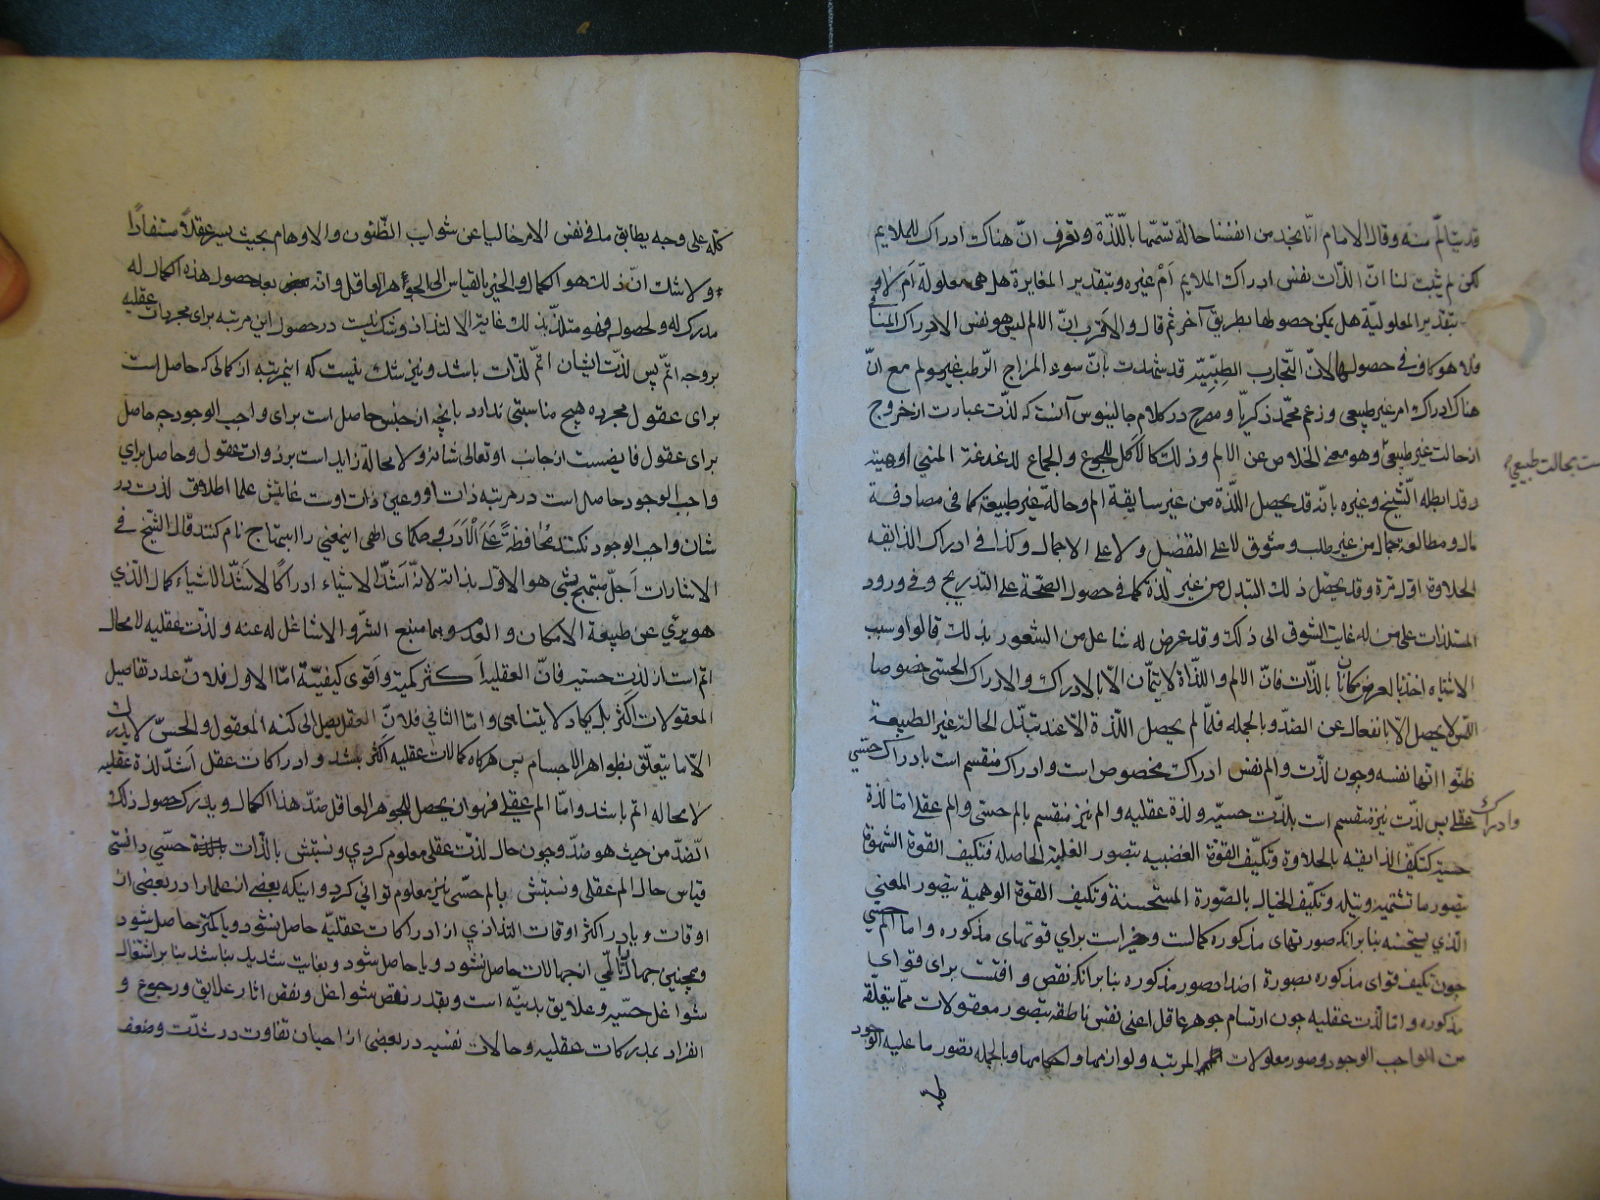 قد يتألّم منه وقال الامام انّا نجد من انفسنا حالة نسمّيها باللّذّة ونعرف انّ هناك ادراك للملايم
لكن لم يثبت لنا انّ اللذات نفس ادراك الملايم أمْ غيره وبتقدير المغايرة هل هي معلولة أم لا و
بتقدير المعلولية هل يمكن حصولها بطريق آخر ثم قال والاقرب انّ الالم ليس هو نفس الادراك المنافى
ولا هو كاف في حصولها لانّ التّجارب الطبّيّة قد شهدت بانّ سوء المزاج الرّطب غير مولم مع انّ
هناك ادراك امر غير طبيعى وزعم محمّد زكريّا ومصرح در كلام جالينوس آنست كه لذّت عبارت از خروج
از حالت غير طبيعى وهو معنى الخلاص عن الالم وذلك كالاكل للجوع والجماع لدغدغة المنى اوعيته
ست بحالت طبيعى
وقد ابطله الشّيخ وغيره بانّه قد يحصل اللّذّة من غير سابقة الم وحالة غير طبيعية كما في مصادفة
مال ومطالعة جمال من غير طلب وشوق لا على التفصيل ولا على الاجمال وكذا في ادراك الذائقه
الحلاوة اوّل مرّة وقد يحصل ذلك التبدل من غير لذّة كما في حصول الصّحّة على التدريج وفي ورود
المستلذات على من له غاية الشوق الى ذلك وقد عرض له شاغل من الشعور بذلك قالوا وسبب
الاشتباه اخذ ما بالعرض مكان ما بالذّات فانّ الالم واللذّة لا يتمّان الّا بالادراك والادراك الحسّى خصوصا
اللمس لا يحصل الّا بانفعال عن الضدّ وبالجمله فلمّا لم يحصل اللّذة الّا عند تبدّل الحالة غير الطبيعية
ظنّوا انّها نفسه وچون لذّت والم نفس ادراك مخصوص است وادراك منقسم است بادراك حسّى
وادراك عقلى پس لذّت نيز منقسم است بلذّت حسيّه ولذة عقليه والم نيز منقسم بالم حسّى والم عقلى امّا لذة
حسيّه كتكيّف الذائقه بالحلاوة وتكيّف القوّة الغضبيه بتصور الغلبة الحاصله وتكيف القوة الشهويّة
بتصور ما تشتهيه وتنيله وتكيّف الخيال بالصّورة المستحسنة وتكيف القوة الوهمية بتصور المعنى
الّذي يستحسنه بنا بر آنكه صورتهاى مذكوره كمالست وخير است براى قوتهاى مذكوره واما الم حسّى
چون تكيف قواى مذكوره بصورة اضداد صور مذكوره بنا بر آنكه نقص وآفتست براى قواى
مذكوره وامّا لذّت عقليه چون ارتسام جوهر عاقل اعنى نفس ناطقه بتصور معقولات ممّا يتعلّق
من الواجب الوجود وصور معلولات المرتبه ولوازمها واحكامها وبالجمله بتصور ما عليه الوجود
كله على وجه يطابق ما في نفس الامر خاليا عن شوايب الظّنون والاوهام بحيث يسير عقلاً مستفادًا
ولا شك انّ ذلك هو الكمال والخير بالقياس الى الجوهر العاقل وانّه بعد حصول هذه الكمال له
مدرك له ولحصوله فهو متلذّ بذلك غاية الالتذاذ وشك نيست در حصول اين مرتبه براى مجردات عقليه
بر وجه اتمّ پس لذّت ايشان اتمّ لذّات باشد ونيز شك نيست كه اينمرتبه از كمالى كه حاصل است
براى عقول مجرده هيچ مناسبتى ندارد بآنچه از جنس حاصل است براى واجب الوجود چه حاصل
براى عقول فايضست از جانب او تعالى شانه ولا محاله زايد است بر ذوات عقول وحاصل براي
واجب الوجود حاصل است در مرتبه ذات او وعين ذات اوست غايتش علما اطلاق لذّت در
شان واجب الوجود نكنند مُحافظةً عَلَى الْأدَب وحكماى الهى اينمعنى را ابتهاج نام كنند قال الشّيخ في
الاشارات اَجلّ مبتهج بشئ هو الاوّل بذاته لانّه اَشدّ الاشياء ادراكًا لاَشدّ الاشياء كمال الّذي
هو برئ عن طبيعة الامكان والعدم وهما منبع الشرّ ولا شاغل له عنه ولذّت عقليه لا محاله
اتم است از لذت حسيه فانّ العقلية اَكثر كمية واَقوى كيفيّة امّا الاوّل فلانّ عدد تفاصيل
المعقولات اكثر بل يكاد لا يتناهى وامّا الثاني فلانّ العقل يصل الى كنه المعقول والحسّ لا يدرك
الّا ما يتعلّق بظواهر الاجسام پس هر گاه كمالات عقليه اكثر باشد وادراكات عقل اَشدّ لذة عقليه
لا محاله اتم باشد وامّا الم عقلى فهو ان يحصل للجوهر العاقل ضدّ هذا الكمال ويدرك حصول ذلك
الضدّ من حيث هو ضدّ وچون حال لذّت عقلى معلوم كردي ونسبتش بالذّات حسّى دانستى
قياس حال الم عقلى ونسبتش بالم حسّى نيز معلوم توانى كرد واينكه بعضى از علما را در بعضى از
اوقات ويا در اكثر اوقات التذاذي از ادراكات عقليّه حاصل نشود ويا كمتر حاصل شود
وهمچنين جهال را تالّمى از جهالات حاصل نشود ويا حاصل شود وبغايت شديد نباشد بنا بر اشتغال
شواغل حسّيه وعلايق بدنيّه است وبقدر نقص شواغل ونقص آثار علايق ورجوع و
انفراد بمدركات عقليه وحالات نفسيه در بعضى از احيان تفاوت در شدّت وضعف